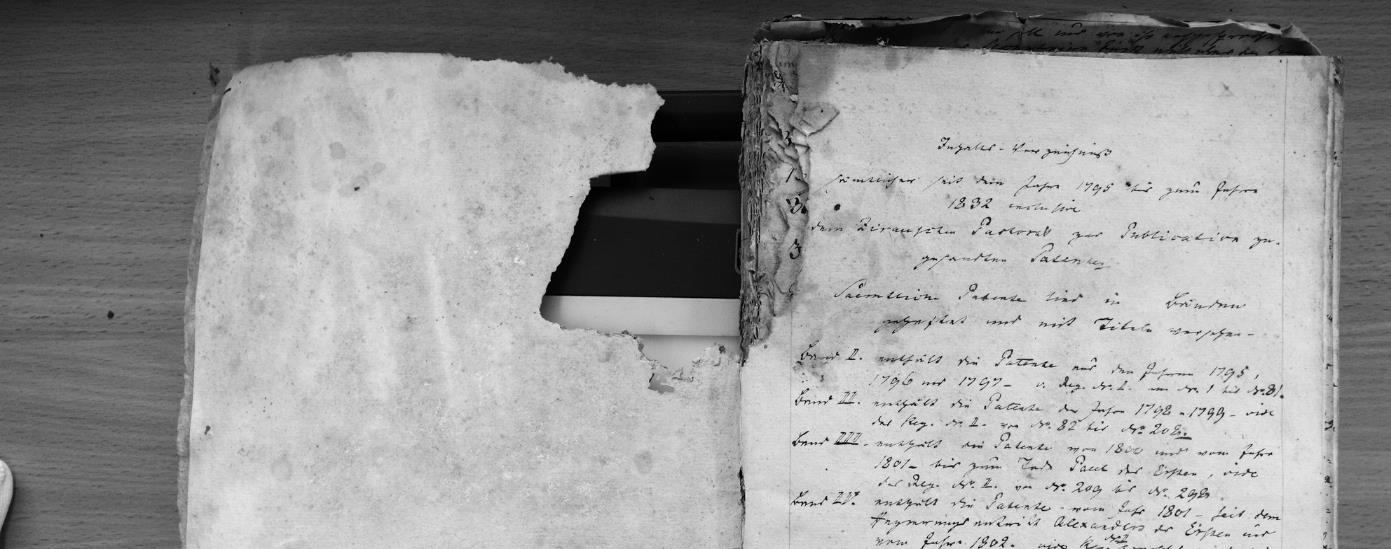 Inhalts-Verzeichniß
sämtlicher seit dem Jahre 1795 bis zum Jahre
1832 inclusive
dem Pastorat zur Publication zu-
gesandten Patente
Saemtliche Patente sind in Bänden
geheftet und mit Titeln versehen-
Band I. enthält die Patente aus den Jahren 1795,
1796 und 1797- v. Reg. № I. von № 1 bis № 81.
Band II. enthält die Patente der Jahre 1798-1799- vide
das Reg. № I. von № 82 bis № 208.
Band III. enthält die Patente von 1800 und vom Jahre
1801- bis zum Tode Paul des Ersten, vide
das Reg. № I. von № 209 bis № 298.
Band IV. enthält die Patente vom Jahr 1801- seit dem
Regierungsantritt Alexanders des Ersten und
vom Jahre 1802- vide